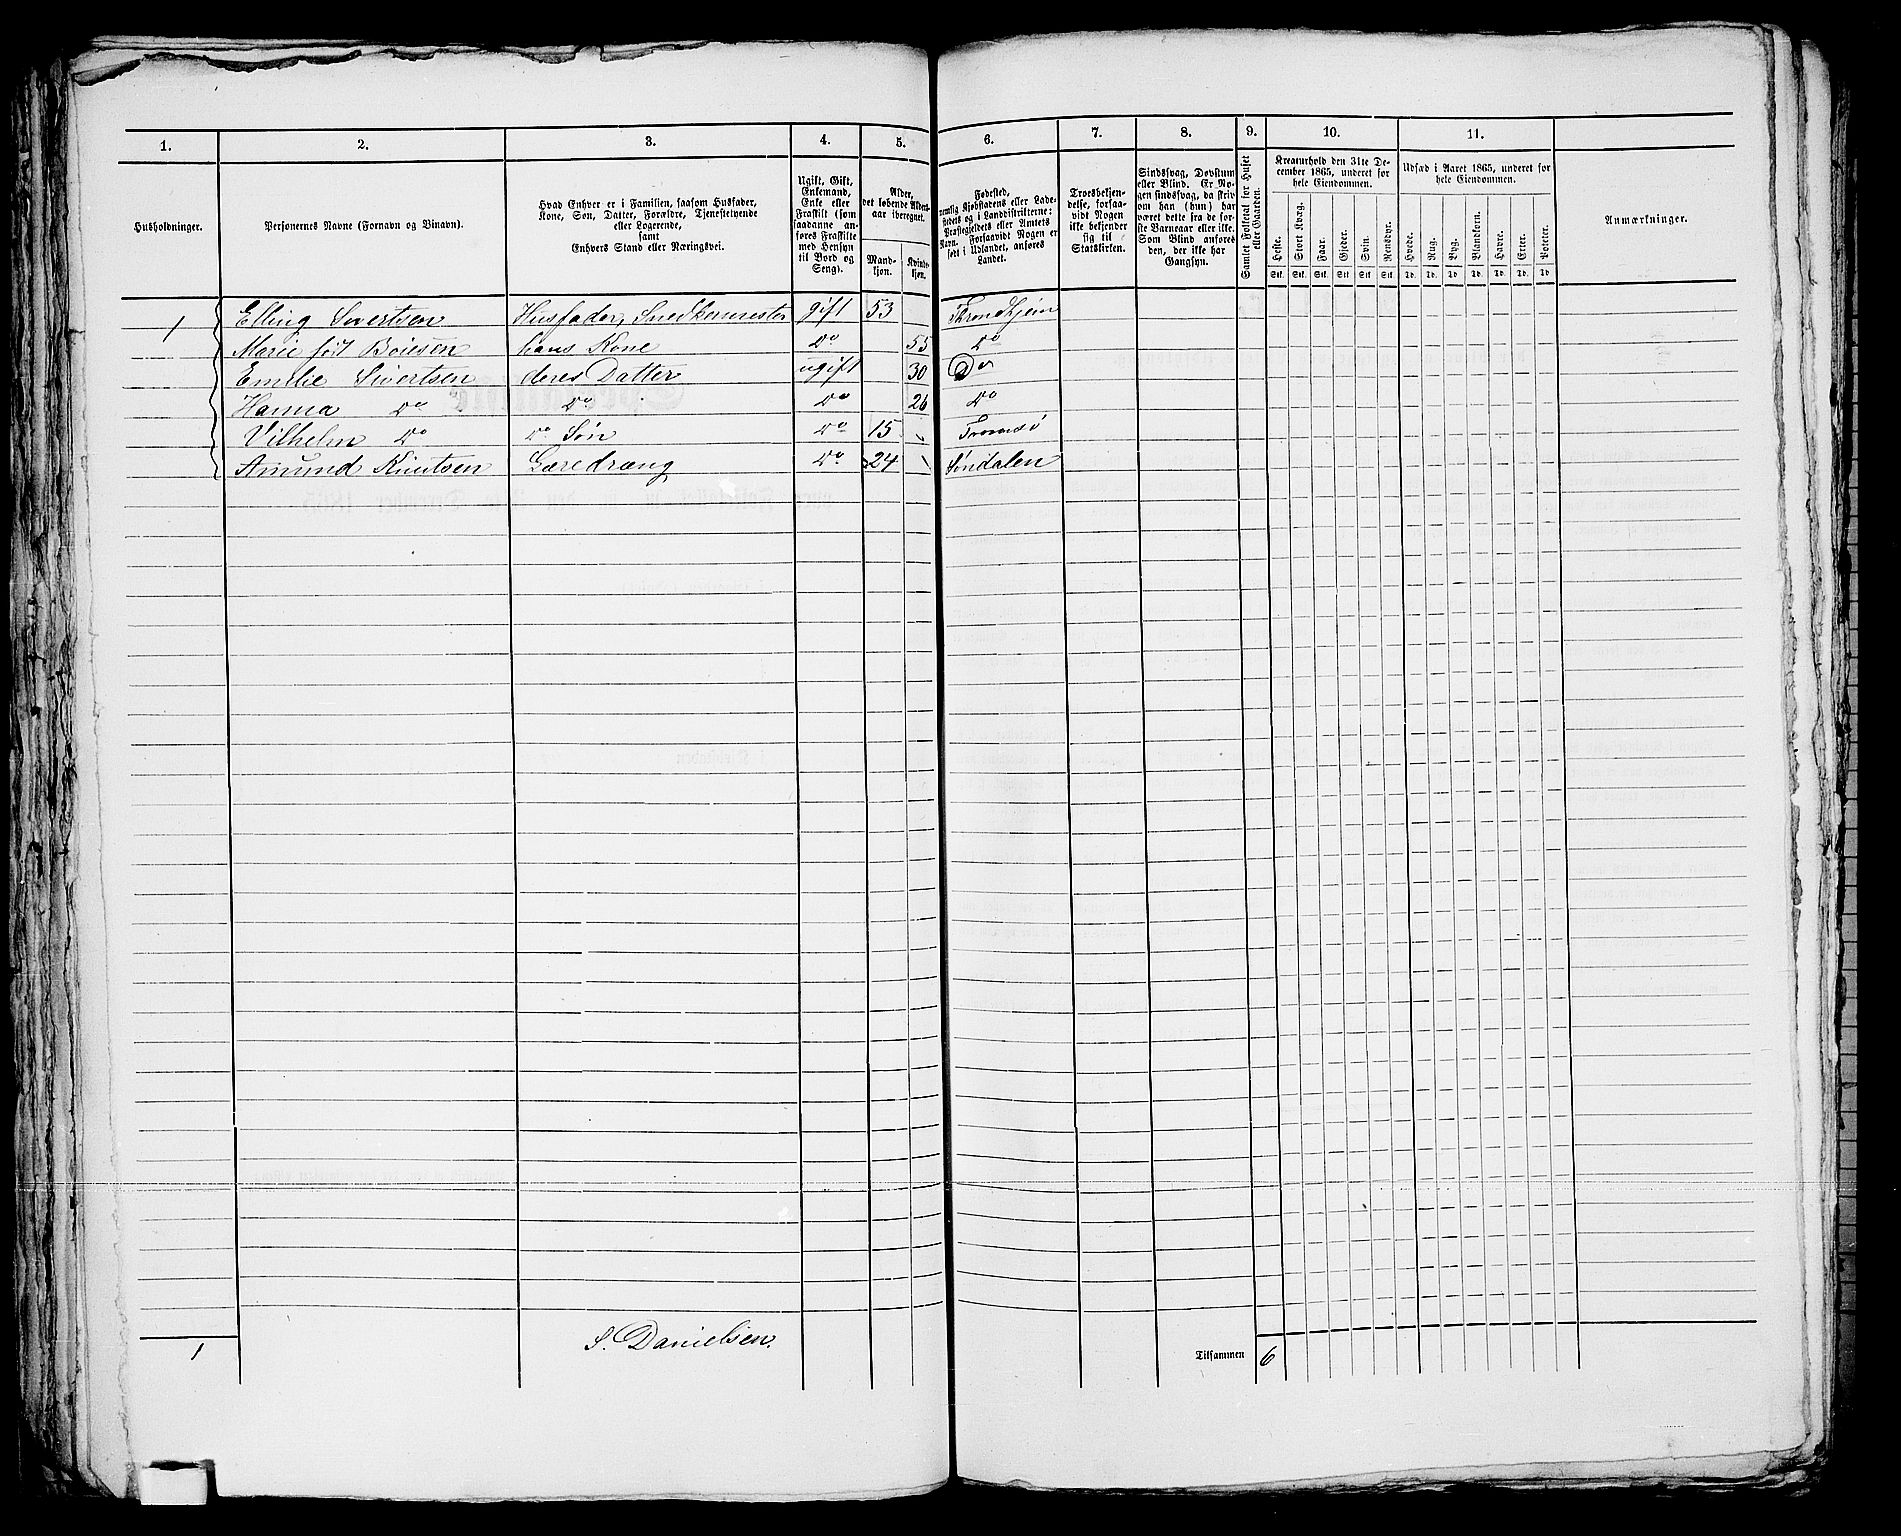 1. 2. 3. 4. 5. 6. 7. 8. 9. 10. 11.
Husholdninger.
Personernes Navne (Fornavn og Binavn).
Hvad Enhver er i Familien, saasom Husfader,
Kone, Søn, Datter, Forældre, Tjenestetyende
eller Logerende,
samt
Enhvers Stand eller Næringsvei.
Ugift, Gift,
Enkemand,
Enke eller
Fraskilt (som
saadanne an-
føres Fraskilte
med Hensyn
til Bord og
Seng).
Alder,
det løbende Alders-
aar iberegnet.
Mand-
kjøn.
Kvind-
kjøn.
Fødested,
nemlig Kjøbstadens eller Lade-
stedets og i Landdistrikterne:
Præstegjeldets eller Amtets
Navn. Forsaavidt Nogen er
født i Udlandet, anføres
Landet.
Troesbekjen-
delse, forsaa-
vidt Nogen
ikke bekjender
sig til
Statskirken.
Sindssvag, Døvstum
eller Blind. Er No-
gen sindssvag, da skriv
om han (hun) har
været dette fra de før-
ste Barneaar eller ikke.
Som Blind anføres
den, der ikke har
Gangsyn.
Samlet Folketal for Huset
eller Gaarden.
Kreaturhold den 31te De-
cember 1865, underet for
hele Eiendommen.
Heste. Stort Kvæg. Faar. Gjeder. Svin. Rensdyr.
Stk. Stk. Stk. Stk. Stk. Stk.
Udsæd i Aaret 1865, underet for
hele Eiendommen.
Hvede. Rug. Byg. Blandkorn. Havre. Erter. Poteter.
Td. Td. Td. Td. Td. Td. Td.
Anmærkninger.
1 Elling Sivertsen Husfader, Snedkermester gift 53 Throndhjem
Marie født Boiesen hans Kone Do 55 Do
Emelie Sivertsen deres Datter ugift 30 Do
Hanna Do Do Do 26 Do
Vilhelm Do Do Søn Do 15 Tromsø
Amund Knutsen Garedræng Do 24 Søndalen
S. Danielsen.
1 Tilsammen 6